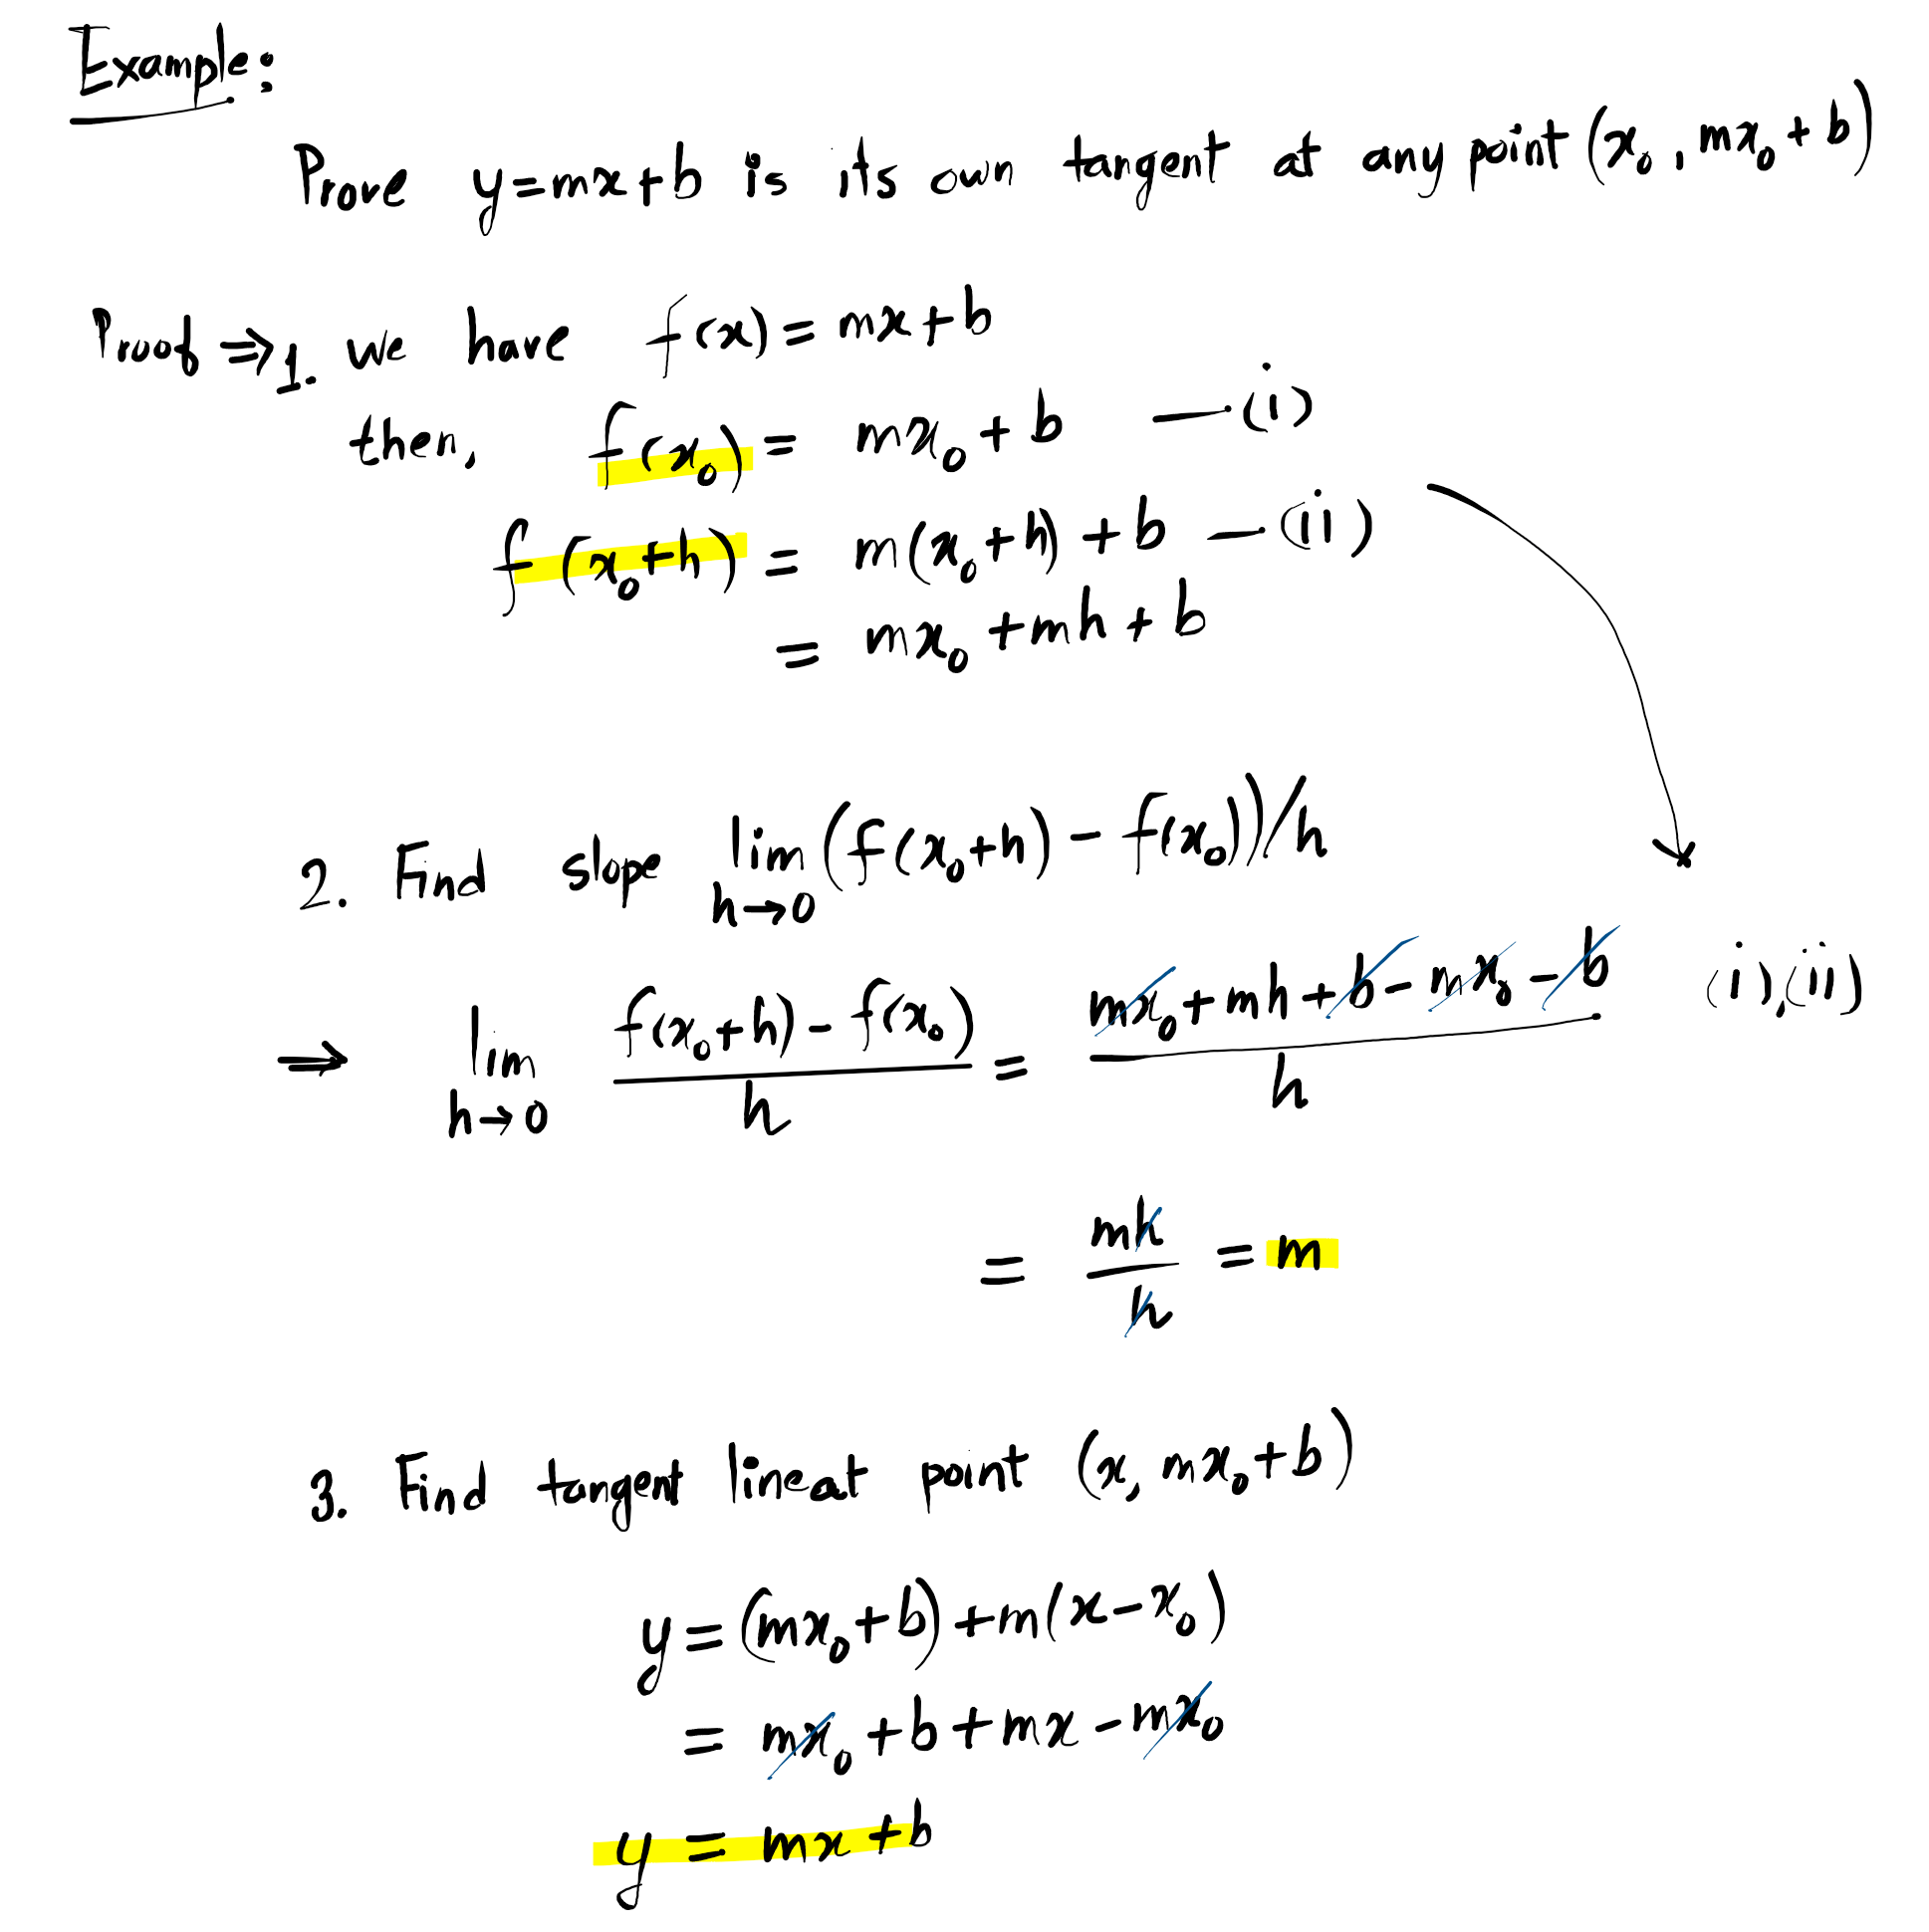 Example:
Prove y=mx+b is its own tangent at any point (x₀, mx₀+b)
Proof ⇒ 1. We have f(x) = mx+b
then, f(x₀) = mx₀+b —(i)
f(x₀+h) = m(x₀+h)+b —(ii)
= mx₀+mh+b
2. Find slope lim h→0 (f(x₀+h) - f(x₀))/h
⇒ lim h→0 (f(x₀+h) - f(x₀))/h = (mx₀+mh+b-mx₀-b)/h (i),(ii)
= mh/h = m
3. Find tangent lineat point (x, mx₀+b)
y = (mx₀+b)+m(x-x₀)
= mx₀+b+mx-mx₀
y = mx+b